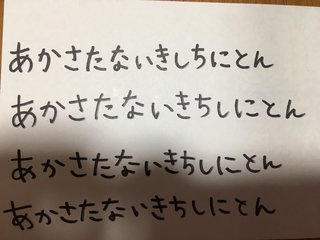 あかさたないきしちにとん
あかさたないきちしにとん
あかさたないきちしにとん
あかさたないきちしにとん